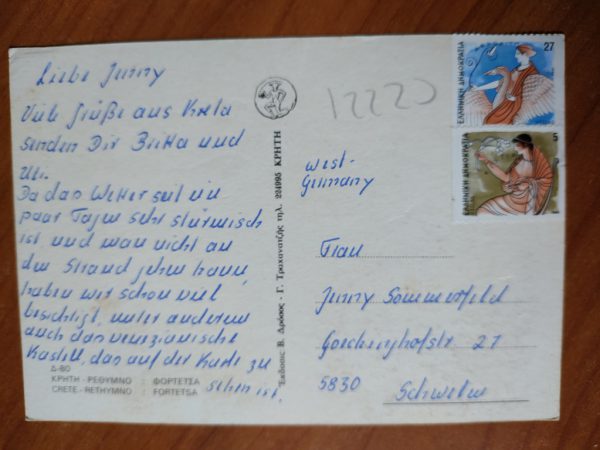 Liebe Jenny
Viele Grüße aus Kreta
senden Dir Britta und
Uli.
Da das Wetter seit ein
paar Tagen sehr stürmisch
ist und man nicht an
den Strand gehen kann,
haben wir schon viel
besichtigt, unter anderem
auch das venezianische
Kastell, das auf der Karte zu
sehen ist.
Δ-80
ΚΡΗΤΗ - ΡΕΘΥΜΝΟ : ΦΟΡΤΕΤΣΑ
CRETE - RETHYMNO : FORTETSA
Έκδοσις Β. Δρόσος - Γ. Τραχανατζής τηλ. 224095 ΚΡΗΤΗ
12220
27
ΕΛΛΗΝΙΚΗ ΔΗΜΟΚΡΑΤΙΑ
5
ΕΛΛΗΝΙΚΗ ΔΗΜΟΚΡΑΤΙΑ
West-
Germany
Frau
Jenny Sommerfeld
21
5830
Schwelm